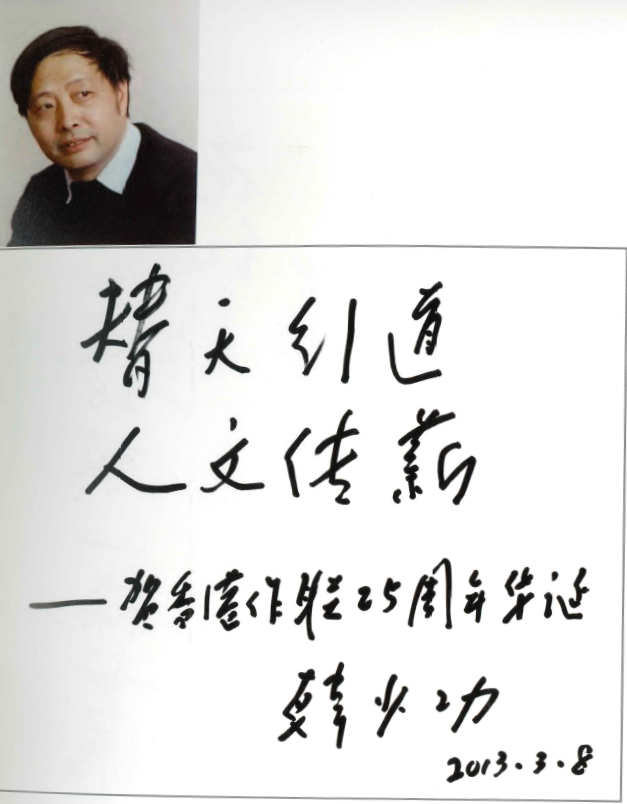 替天引道
人文传薪
——贺香港作联25周年华诞
韩少功
2013.3.8